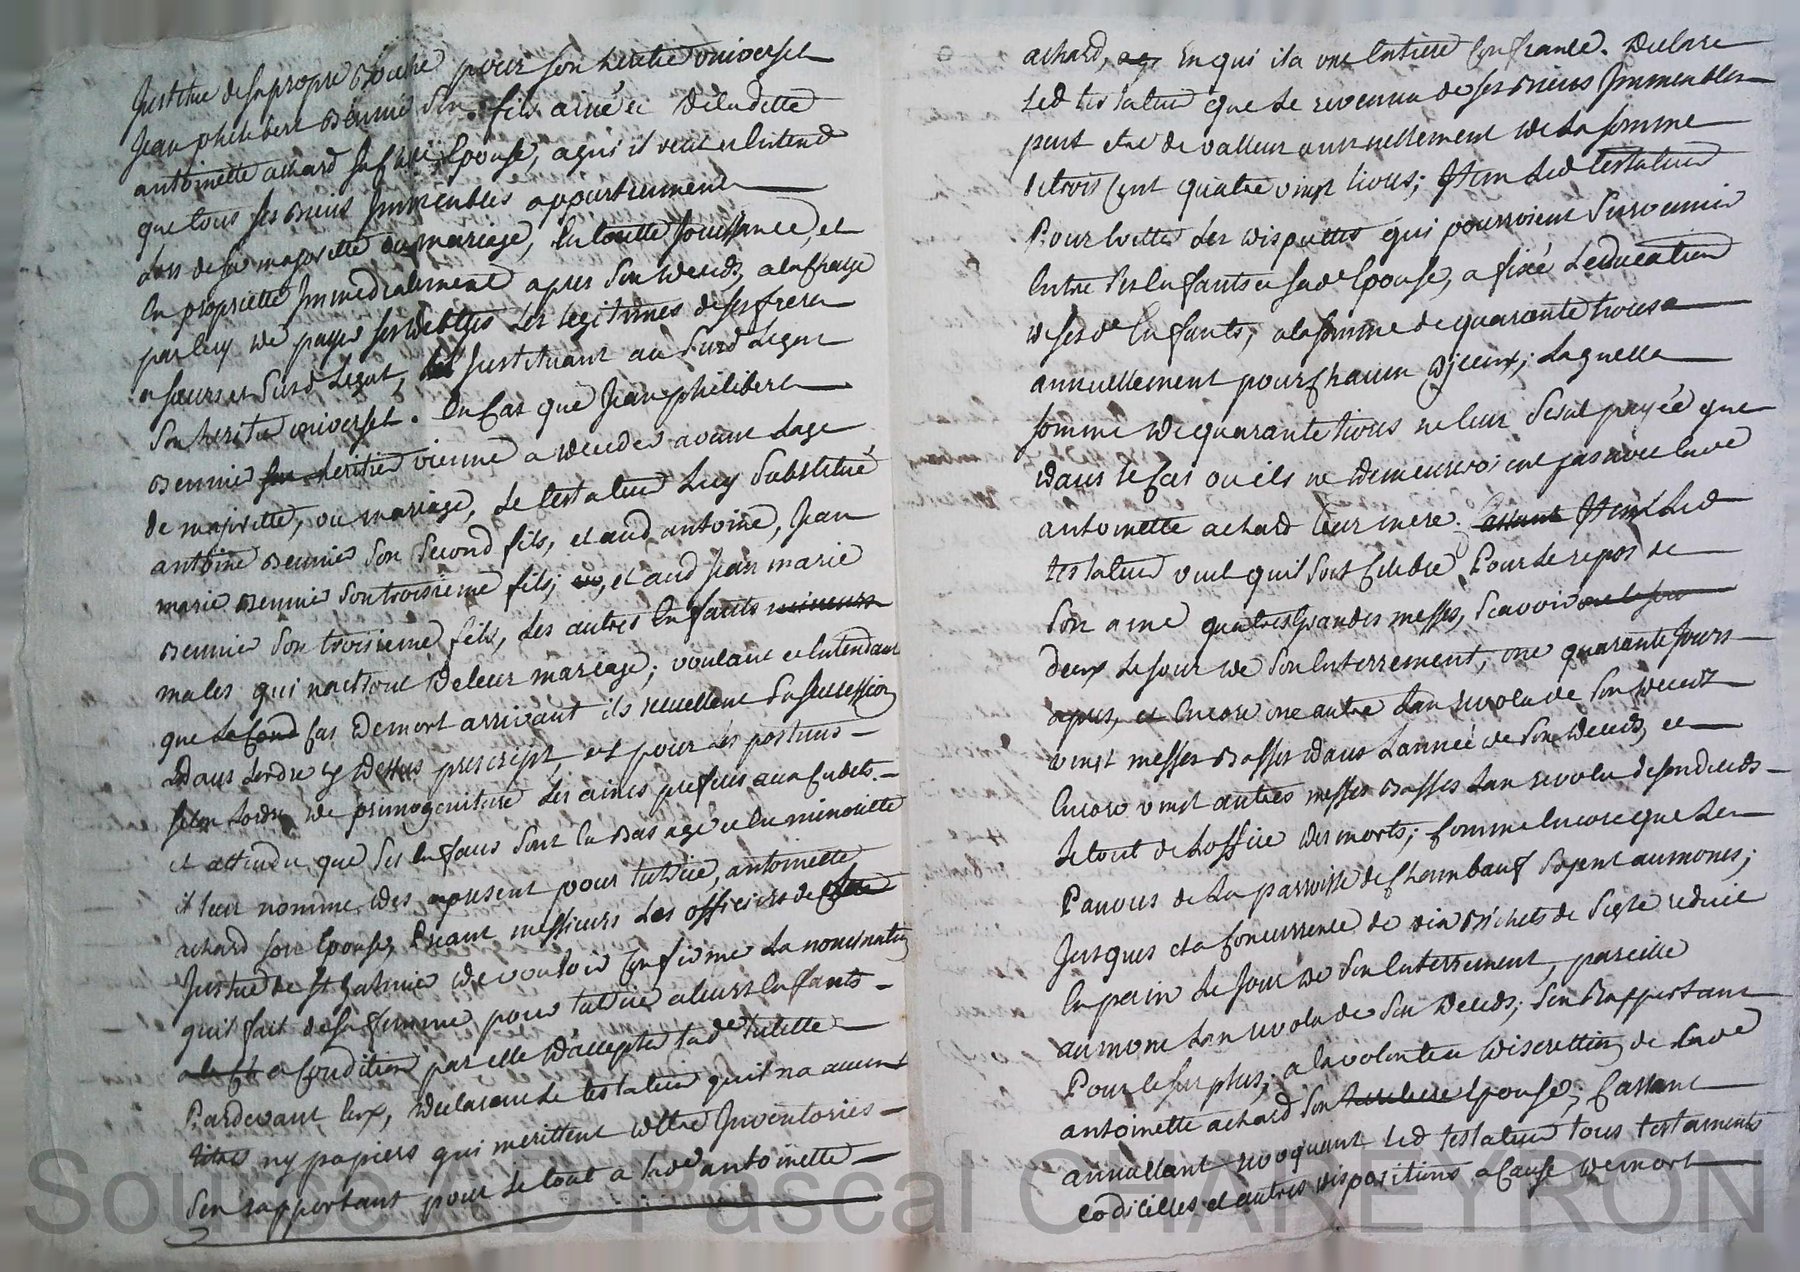 Institue de sa propre bouche pour son heritié universel
Jean philibert Bennié son fils ainé & de ladette
antoinette achard sa chere Epouse, a qui il veut et entend
que tous ses Biens Immeubles appartiennent
Lors de sa majoritté ou mariage, En toutte Jouissance, et
En propriette Immediatement apres son deceds, a la charge
par luy de payer ses debtes les legitimes de ses freres
et sœurs et susd Legat, Instituant au susd Legat
son heritié universel. En Cas que Jean philibert
Bennié son heritié vienne a deceder avant Lage
de majoritté, ou mariage, Le testateur Luy substitue
antoine Bennié son second fils, et aud antoine, Jean
marie Bennié son troisieme fils; et aud Jean marie
Bennié son troisieme fils, les autres Enfants mineurs
males qui naitront de leur mariage; voulant et Entendant
que Cas de mort arrivant ils recuellent sa succession
dans Lordre cy dessus prescript, et pour les postums
selon Lordre de primogeniture Les ainés preferés aux Cadets.
et attendu que ses Enfans sont En Bas age et En minoritté
il leur nomme des apresent pour tutrice, antoinette
achard son Epouse, Priant messieurs Les officiers de
Justice de St Galmier de vouloir Confirmé La nomination
quil fait de sa femme pour tutrice a leurs Enfants
a Condition par elle d'accepter lad tutelle
Pardevant Eux, declarant Le testateur quil na aucuns
titres ny papiers qui merittent dettre Inventoriés
sen rapportant pour Le tout a lad antoinette
achard, En qui il a une Entiere Confiance. Declare
Led testateur que Le revenu de ses Biens Immeubles
peut etre de valleur annuellement de La somme
de trois Cent quatre vingt livres; Item Led testateur
Pour Evitté Les disputtes qui pourroient survenir
Entre ses Enfants et sad Epouse, a fixée Leducation
de sesd Enfants, a la somme de quarante livres
annuellement pour chacun d'iceux; Laquelle
somme de quarante livres ne leur sera payée que
dans le Cas ou ils ne demeureroient pas avec lad
antoinette achard leur mere. Item Led
testateur veut quil soit Celebré Pour Le repos de
son ame quatres Grandes messes, scavoir
deux Le Jour de son Enterrement, une quarante Jours
apres, et Encore une autre Lan revolu de son deceds
vingt messes Basses dans Lannée de son deceds, et
Encore vingt autres messes Basses Lan revolu de son deceds
Le tout de Loffice des morts; Comme Encore que Les
Pauvres de La parroisse de Chambœuf soyent aumonés;
Jusques a la Concurrence de six Bichets de seigle reduit
En pain Le Jour de son Enterrement, pareille
aumone Lan revolu de son deceds; sen Rapportant
Pour le surplus; a la volonté et discrettion de lad
antoinette achard son Epouse; Cassant
annullant revoquant Led testateur tous testaments
codicilles et autres dispositions a Cause de mort
Source AD Pascal CHAREYRON